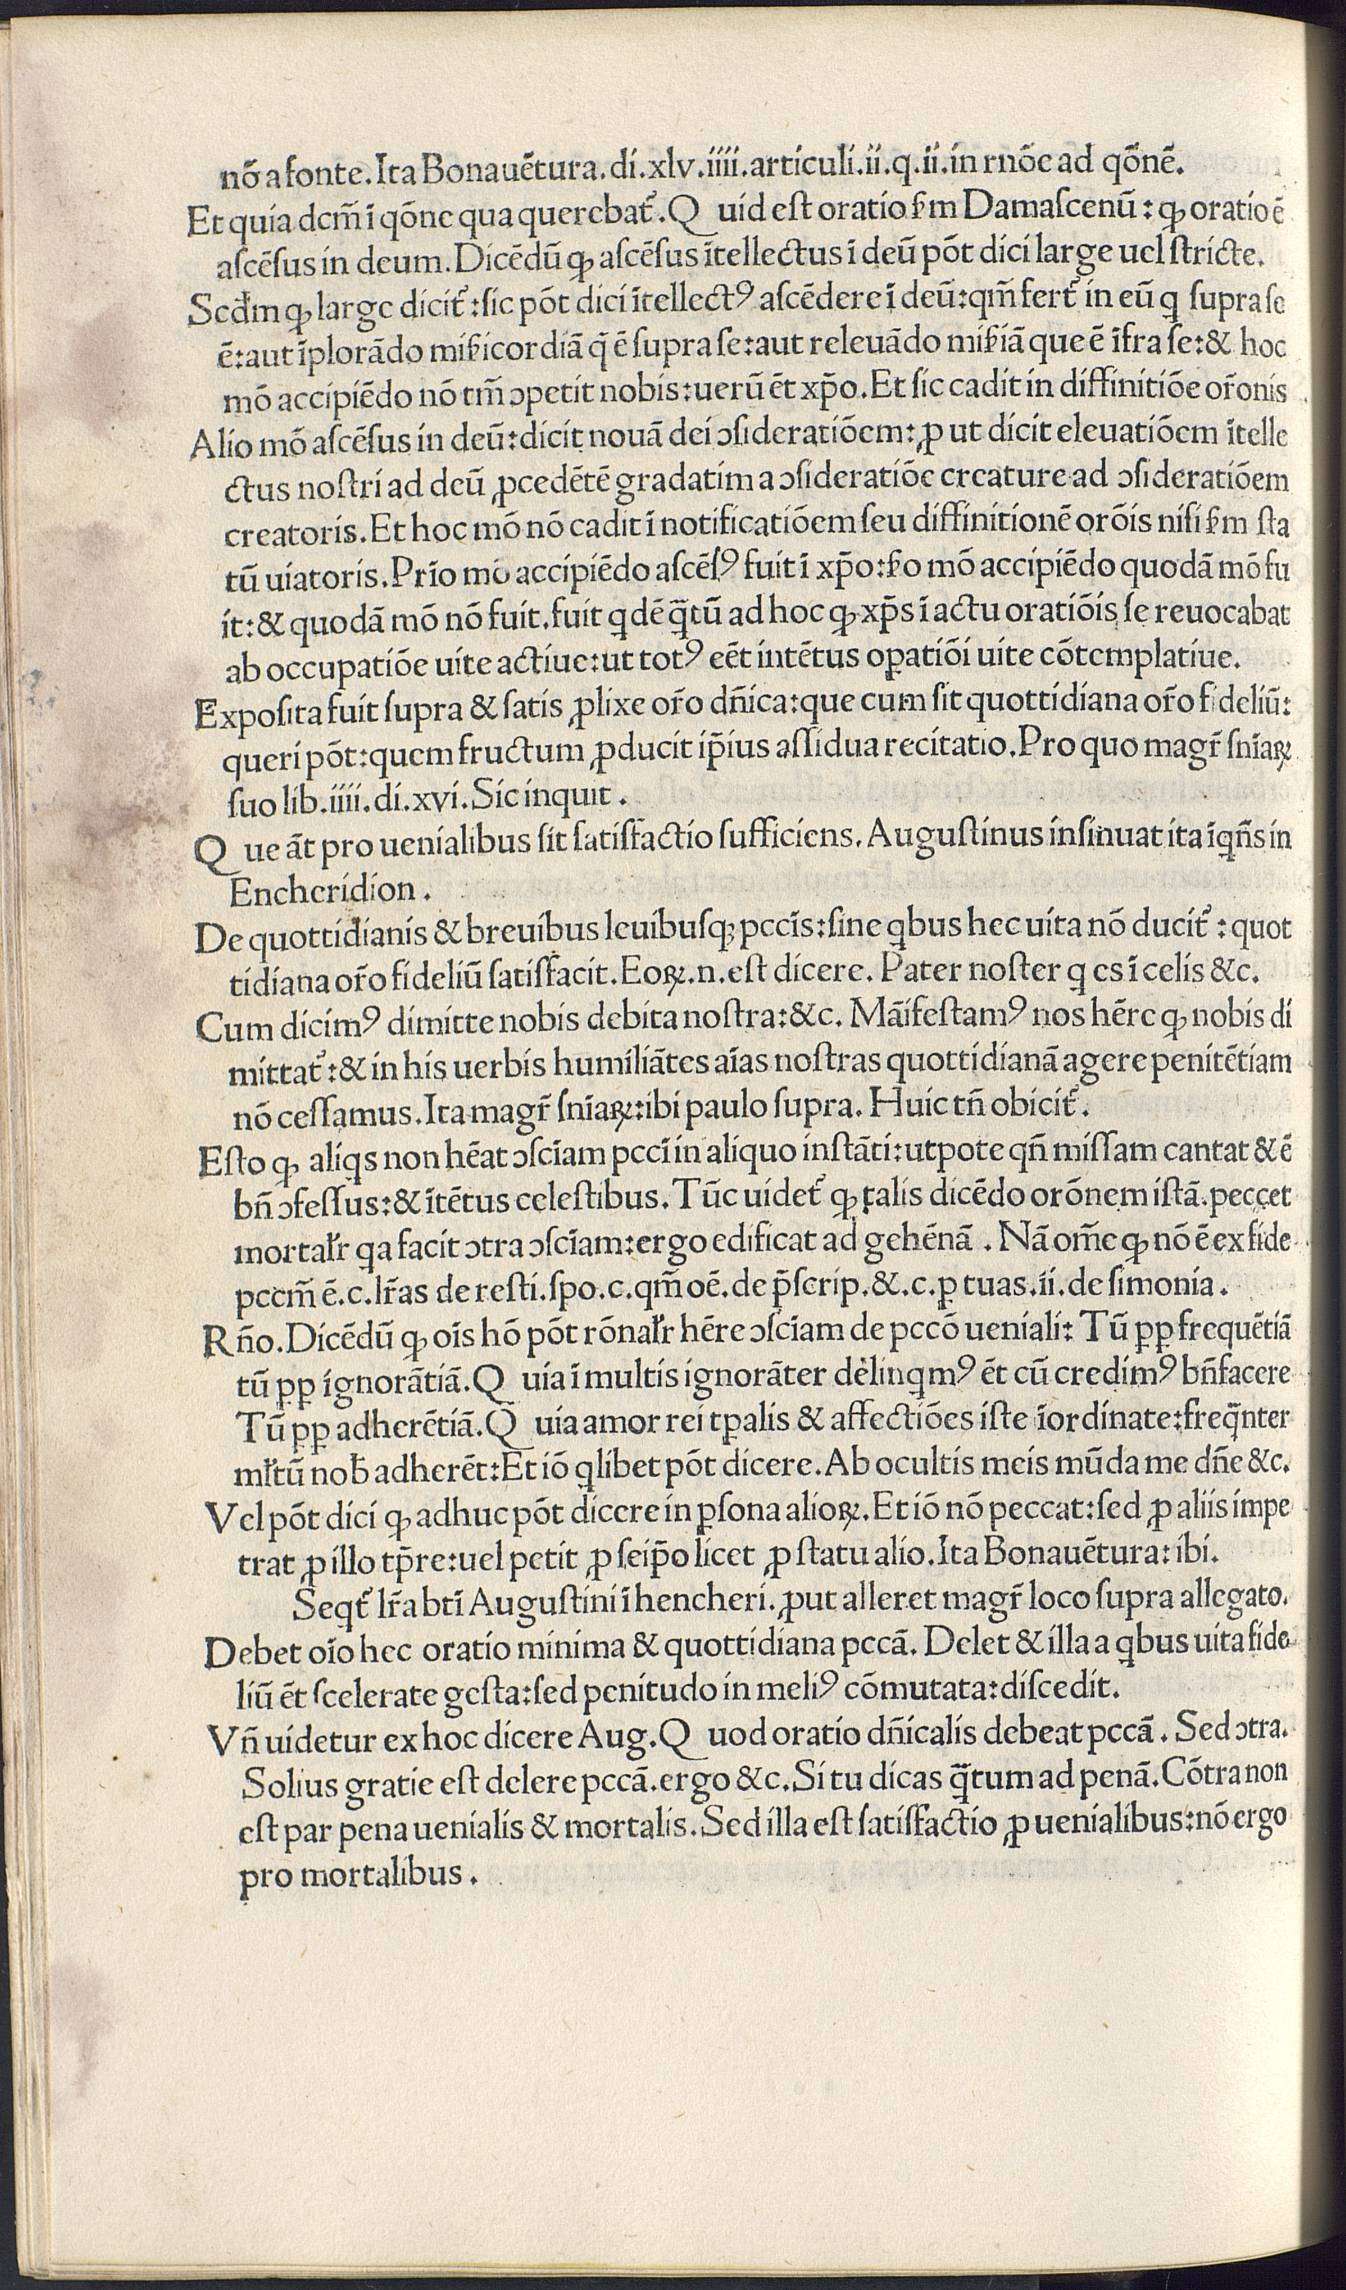 nõ a fonte. Ita Bonauẽtura. di. xlv. iiii. articuli. ii. q. ii. in rñõe ad qõnẽ.
Et quia dcm̃ ĩ qõne qua querebat᷑. Q uid est oratio ẜm Damascenũ: ꝙ oratio ẽ
ascẽsus in deum. Dicẽdũ ꝙ ascẽsus ĩtellectus ĩ deũ põt dici large uel stricte.
Scd̃m ꝙ large dicit᷑: sic põt dici ĩtellectꝰ ascẽdere ĩ deũ: qm̃ fert᷑ in eũ q̲ supra se
ẽ: aut ĩplorãdo miẜicordiã q̃ ẽ supra se: aut releuãdo miẜiã que ẽ ĩfra se: & hoc
mõ accipiẽdo nõ tm̃ ↄpetit nobis: uerũ ẽt xp̃o. Et sic cadit in diffinitiõe or̃onis
Alio mõ ascẽsus in deũ: dicit nouã dei ↄsideratiõem: ꝓ ut dicit eleuatiõem ĩtelle
ctus nostri ad deũ ꝓcedẽtẽ gradatim a ↄsideratiõe creature ad ↄsideratiõem
creatoris. Et hoc mõ nõ cadit ĩ notificatiõem seu diffinitionẽ orõis nisi ẜm sta
tũ uiatoris. Prĩo mo accipiẽdo ascẽsꝰ fuit ĩ xp̃o: ẜo mõ accipiẽdo quodã mõ fu
it: & quodã mõ nõ fuit. fuit q̲dẽ q̃tũ ad hoc ꝙ xp̃s ĩ actu oratiõis se reuocabat
ab occupatiõe uite actiue: ut totꝰ eẽt intẽtus oꝑatiõi uite cõtemplatiue.
Exposita fuit supra & satis ꝓlixe or̃o dñica: que cum sit quottidiana or̃o fideliũ:
queri põt: quem fructum ꝓducit ip̃ius assidua recitatio. Pro quo magr̃ snĩaꝝ
suo lib. iiii. di. xvi. Sic inquit.
Q ue ãt pro uenialibus sit satisfactio sufficiens. Augustinus insinuat ita ĩq̲ñs in
Encheridion.
De quottidianis & breuibus leuibusqꝫ pccĩs: sine q̲bus hec uita nõ ducit᷑: quot
tidiana or̃o fideliũ satisfacit. Eoꝝ. n. est dicere. Pater noster q̲ es ĩ celis &c.
Cum dicimꝰ dimitte nobis debita nostra: &c. Mãifestamꝰ nos hẽre ꝙ nobis di
mittat᷑: & in his uerbis humiliãtes aĩas nostras quottidianã agere penitẽtiam
nõ cessamus. Ita magr̃ snĩaꝝ: ibi paulo supra. Huic tñ obicit᷑.
Esto ꝙ aliq̲s non hẽat ↄscĩam pccĩ in aliquo instãti: utpote qñ missam cantat & ẽ
bñ ↄfessus: & ĩtẽtus celestibus. Tũc uidet᷑ ꝙ talis dicẽdo orõnem istã. peccet
mortal̃r q̲a facit ↄtra ↄscĩam: ergo edificat ad gehẽnã. Nã om̃e ꝙ nõ ẽ ex fide
pccm̃ ẽ. c. lr̃as de resti. spo. c. qm̃ oẽ. de p̃scrip. &. c. ꝑ tuas. ii. de simonia.
Rño. Dicẽdũ ꝙ oĩs hõ põt rõnal̃r hẽre ↄscĩam de pccõ ueniali: Tũ ꝑꝑ frequẽtiã
tũ ꝑꝑ ignorãtiã. Q uia ĩ multis ignorãter delinq̲mꝰ ẽt cũ credimꝰ bñfacere
Tũ ꝑꝑ adherẽtiã. Q uia amor rei tꝑalis & affectiões iste ĩordinate: freq̃nter
ml̃tũ nob̃ adherẽt: Et iõ q̲libet põt dicere. Ab ocultis meis mũda me dñe &c.
Vel põt dici ꝙ adhuc põt dicere in ꝑsona alioꝝ. Et iõ nõ peccat: sed ꝓ aliis impe
trat ꝓ illo tp̃re: uel petit ꝓ seip̃o licet ꝓ statu alio. Ita Bonauẽtura: ibi.
Seqt᷑ lr̃a btĩ Augustini ĩ hencheri. ꝓut alleret magr̃ loco supra allegato.
Debet oĩo hec oratio minima & quottidiana pccã. Delet & illa a q̲bus uita fide
liũ ẽt scelerate gesta: sed penitudo in meliꝰ cõmutata: discedit.
Vñ uidetur ex hoc dicere Aug. Q uod oratio dñicalis debeat pccã. Sed ↄtra.
Solius gratie est delere pccã. ergo &c. Si tu dicas q̃tum ad penã. Cõtra non
est par pena uenialis & mortalis. Sed illa est satisfactio ꝓ uenialibus: nõ ergo
pro mortalibus.